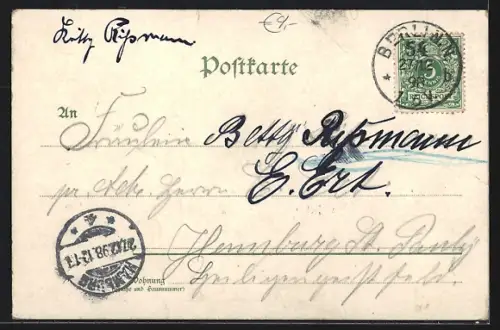 €4,-
Betty Rißmann
Postkarte
BERLIN
5
27/12
98
7-8 V.
An
Fräulein Betty Rißmann
pr. Adr. Herrn E. Ert.
Hamburg St. Pauly
Heiligengeistfeld.
HAMBURG
27.12.98.12-1
Wohnung
(Straße und Hausnummer)